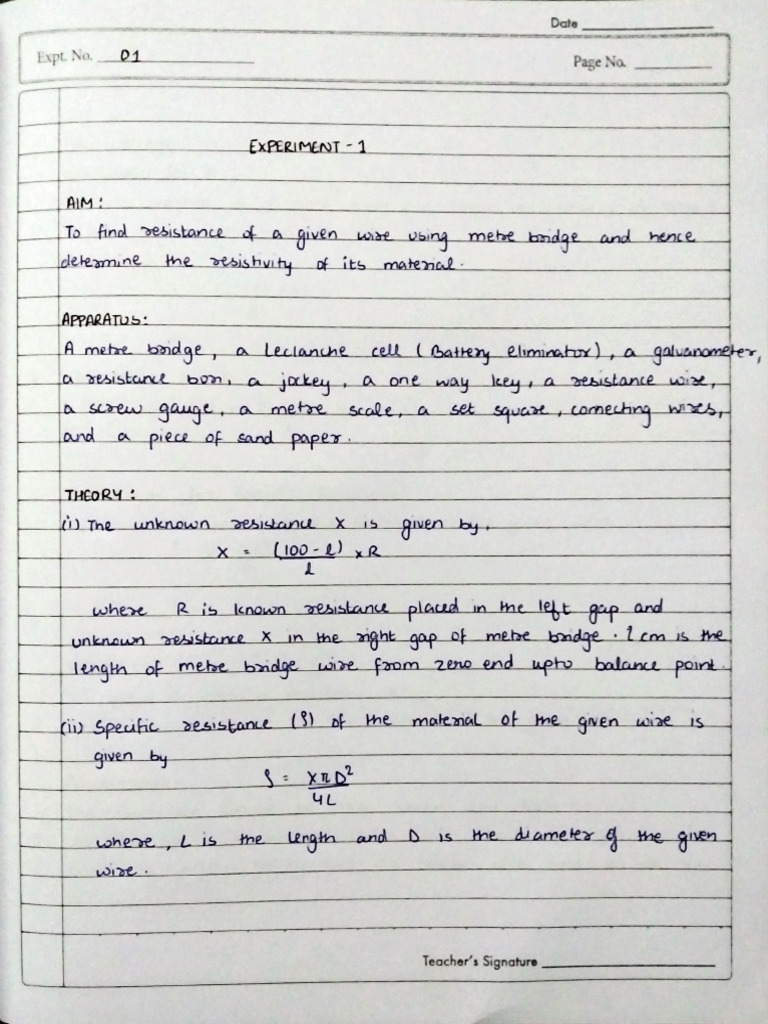 Date
Expt. No. 01
Page No.
EXPERIMENT - 1
AIM :
To find resistance of a given wire using metre bridge and hence
determine the resistivity of its material.
APPARATUS:
A metre bridge, a Leclanche cell (Battery eliminator), a galvanometer,
a resistance box, a jockey, a one way key, a resistance wire,
a screw gauge, a metre scale, a set square, connecting wires,
and a piece of sand paper.
THEORY :
(i) The unknown resistance X is given by,
X = (100 - l) / l × R
where R is known resistance placed in the left gap and
unknown resistance X in the right gap of metre bridge. l cm is the
length of metre bridge wire from zero end upto balance point.
(ii) Specific resistance (ρ) of the material of the given wire is
given by
ρ = XπD² / 4L
where, L is the length and D is the diameter of the given
wire.
Teacher's Signature